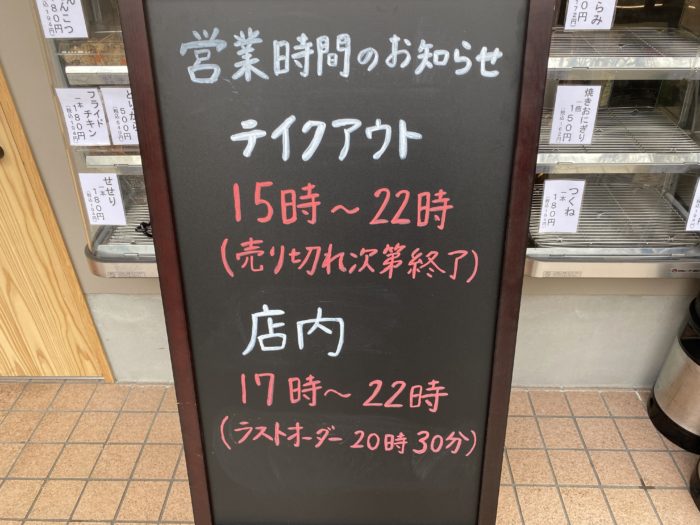 営業時間のお知らせ
テイクアウト
15時～22時
(売り切れ次第終了)
店内
17時～22時
(ラストオーダー20時30分)
180円
フライドチキン
一本180円
500円
せせり
一本180円
焼きおにぎり
150円
つくね
一本180円